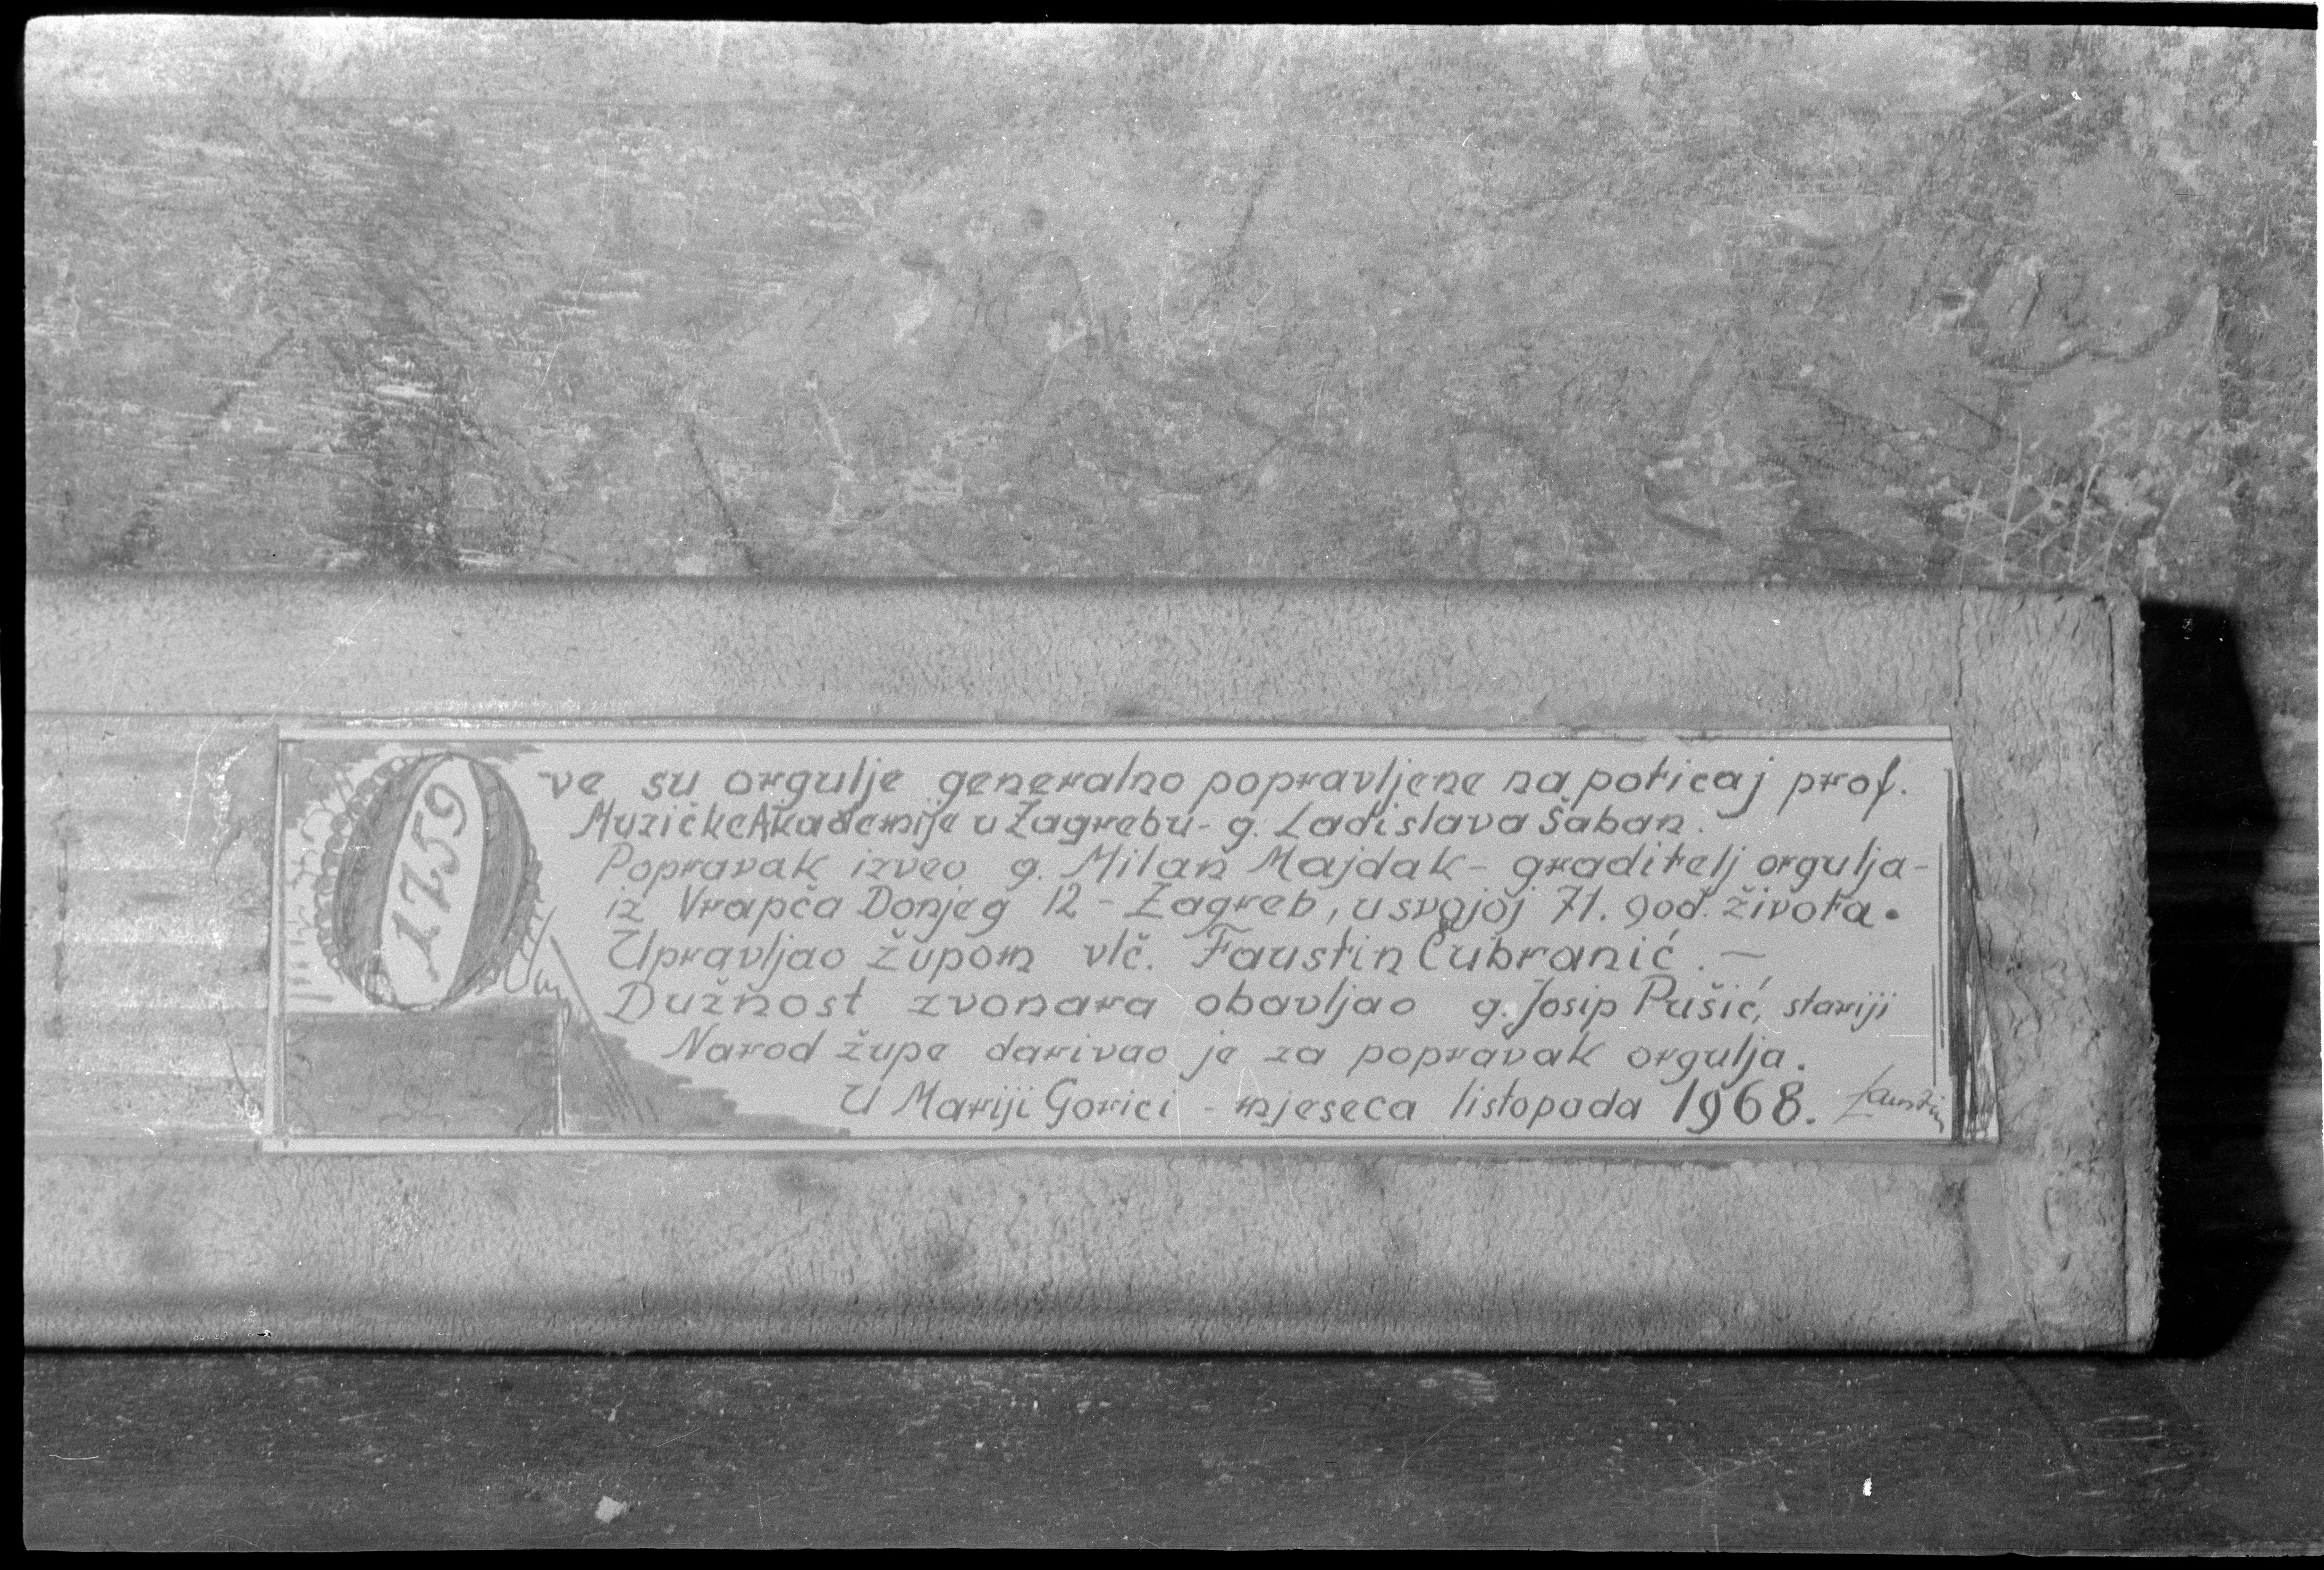 1759
Ove su orgulje generalno popravljene na poticaj prof.
Muzičke Akademije u Zagrebu - g. Ladislava Šaban.
Popravak izveo g. Milan Majdak - graditelj orgulja -
iz Vrapča Donjeg 12 - Zagreb, u svojoj 71. god. života.
Upravljao župom vlč. Faustin Čubranić. -
Dužnost zvonara obavljao g. Josip Pušić, stariji
Narod župe darivao je za popravak orgulja.
U Mariji Gorici - mjeseca listopada 1968. Faustin